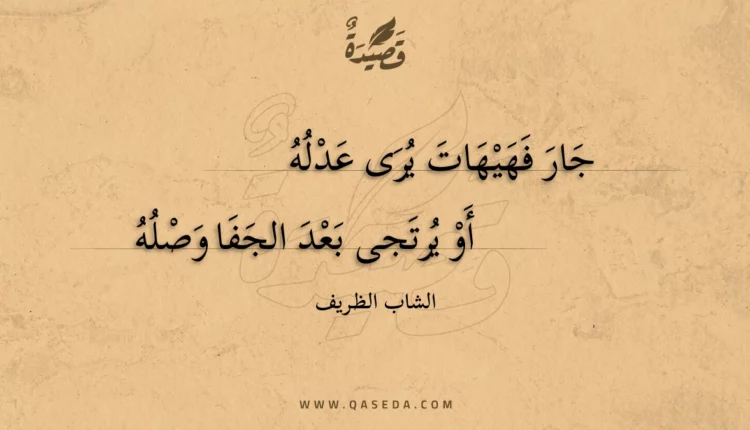 قَصِيْدَةٌ
جَارَ فَهَيْهَاتَ يُرَى عَدْلُهُ
أَوْ يُرتَجى بَعْدَ الجَفَا وَصْلُهُ
الشاب الظريف
WWW.QASEDA.COM